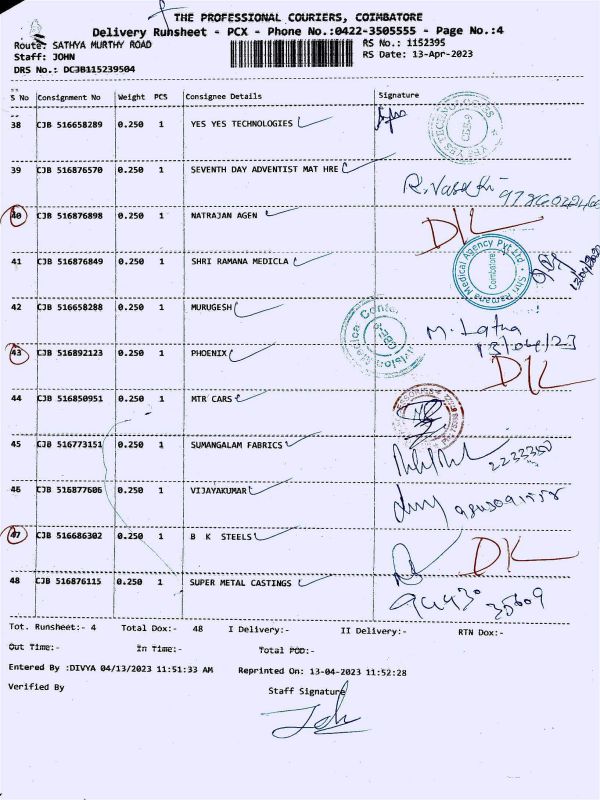 THE PROFESSIONAL COURIERS, COIMBATORE
Delivery Runsheet - PCX - Phone No.:0422-3505555 - Page No.:4
Route: SATHYA MURTHY ROAD
RS No.: 1152395
Staff: JOHN
RS Date: 13-Apr-2023
DRS No.: DCJB115239504
S No Consignment No Weight PCS Consignee Details Signature
38 CJB 516658289 0.250 1 YES YES TECHNOLOGIES
39 CJB 516876570 0.250 1 SEVENTH DAY ADVENTIST MAT HRE
40 CJB 516876898 0.250 1 NATRAJAN AGEN
DL
41 CJB 516876849 0.250 1 SHRI RAMANA MEDICLA
Shri Ramana Medical Agency Pvt Ltd
Coimbatore
42 CJB 516658288 0.250 1 MURUGESH
M. Latha
13/04/23
43 CJB 516892123 0.250 1 PHOENIX
DL
44 CJB 516850951 0.250 1 MTR CARS
45 CJB 516773151 0.250 1 SUMANGALAM FABRICS
2233350
46 CJB 516877606 0.250 1 VIJAYAKUMAR
47 CJB 516686302 0.250 1 B K STEELS
DL
48 CJB 516876115 0.250 1 SUPER METAL CASTINGS
Tot. Runsheet:- 4 Total Dox:- 48 I Delivery:- II Delivery:- RTN Dox:-
Out Time:- In Time:- Total POD:-
Entered By :DIVYA 04/13/2023 11:51:33 AM Reprinted On: 13-04-2023 11:52:28
Verified By
Staff Signature